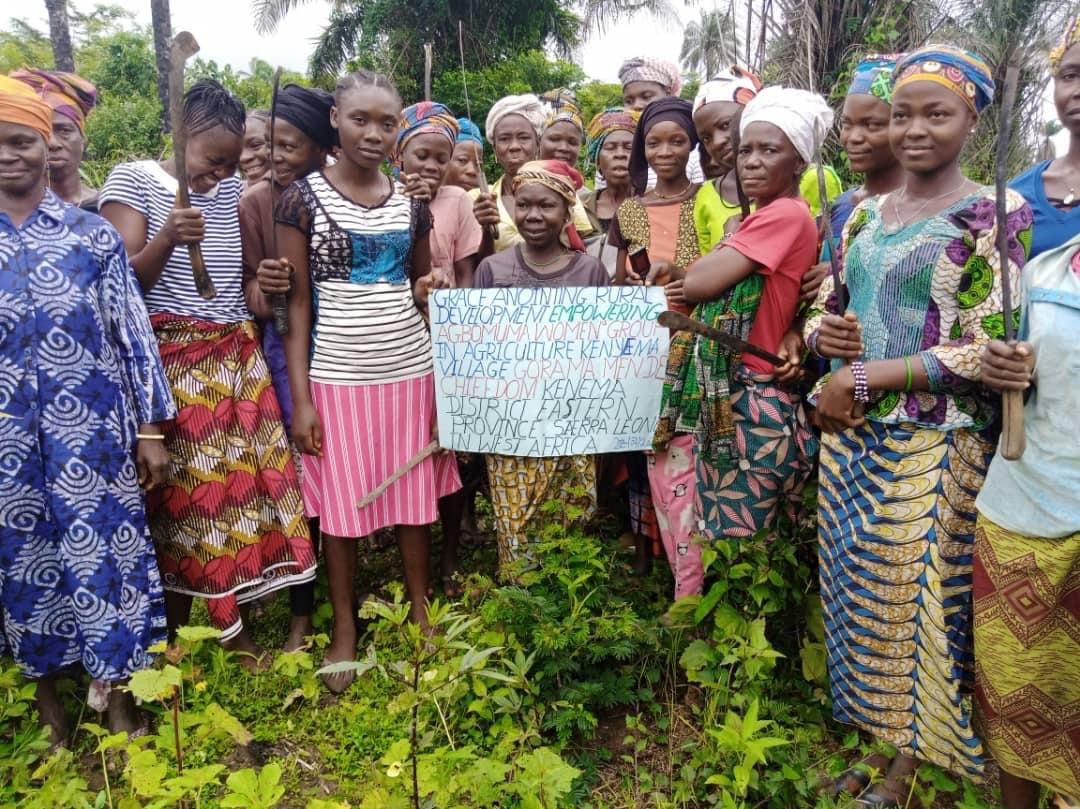 GRACE ANOINTING RURAL
DEVELOPMENT EMPOWERING
AGBOMUMA WOMEN GROUP
IN AGRICULTURE KENYEMA
VILLAGE GORAMA MENDE
CHIEFDOM KENEMA
DISTRICT EASTERN
PROVINCE SAERRA LEONE
IN WEST AFRICA